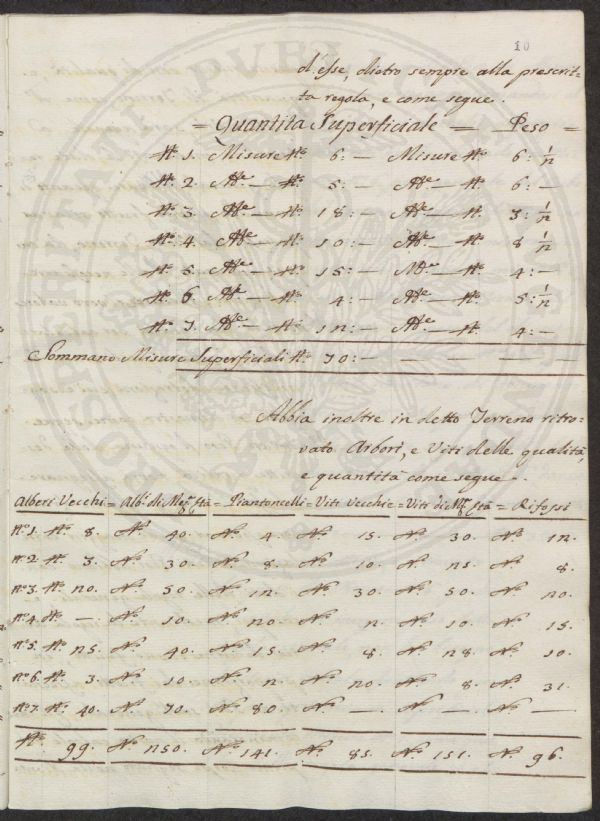 10
d'esse, dietro sempre alla prescrit=
ta regola, e come segue.
= Quantità Superficiale = Peso =
N.° 1. Misure N.° 6: — Misure N.° 6: 1/2
N.° 2. Mise. — N.° 5: — Mise. — N.° 6: —
N.° 3. Mise. — N.° 18: — Mise. — N.° 3: 1/2
N.° 4. Mise. — N.° 10: — Mise. — N.° 8 1/2
N.° 5. Mise. — N.° 15: — Mise. — N.° 4: —
N.° 6. Mise. — N.° 4: — Mise. — N.° 5: 1/2
N.° 7. Mise. — N.° 12: — Mise. — N.° 4: —
Sommano Misure Superficiali N.° 70: — — — —
Abbia inoltre in detto Terreno ritro-
vato Arbori, e Viti delle qualità,
e quantità come segue.
Alberi Vecchi = Alb.i di Mez. età = Piantoncelli = Viti Vecchie = Viti di Mez. età = Rifossi
N.° 1. N.° 8. N.° 40. N.° 4. N.° 15. N.° 30. N.° 12.
N.° 2. N.° 3. N.° 30. N.° 8. N.° 10. N.° 25. N.° 8.
N.° 3. N.° 20. N.° 50. N.° 12. N.° 30. N.° 50. N.° 20.
N.° 4. N.° — N.° 10. N.° 20. N.° 2. N.° 10. N.° 15.
N.° 5. N.° 25. N.° 40. N.° 15. N.° 8. N.° 28. N.° 10.
N.° 6. N.° 3. N.° 10. N.° 2. N.° 20. N.° 8. N.° 31.
N.° 7. N.° 40. N.° 70. N.° 80. N.° — N.° — N.° —
N.° 99. N.° 250. N.° 141. N.° 85. N.° 151. N.° 96.